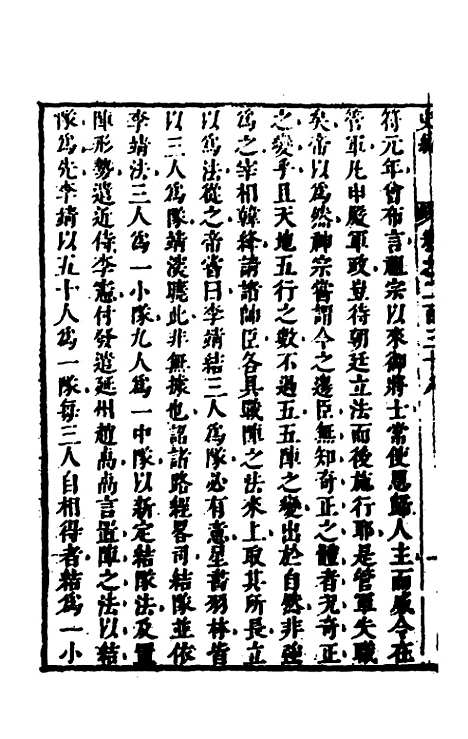 史編　卷之二百三十八　一
符元年曾布言祖宗以來御將士常使恩歸人主而威令在
管軍凡申嚴軍政豈待朝廷立法而後施行耶是管軍失職
矣帝以爲然神宗嘗謂今之邊臣無知奇正之體者況奇正
之變乎且天地五行之數不過五五陣之變出於自然非強
爲之宰相韓絳請諸帥臣各具戰陣之法來上取其所長立
以爲法從之帝嘗曰李靖結三人爲隊必有意星書羽林皆
以三人爲隊靖深曉此非無據也詔諸路經畧司結隊並依
李靖法三人爲一小隊九人爲一中隊以新定結隊法及置
陣形勢遣近侍李憲付發遣延州趙卨卨言置陣之法以結
隊爲先李靖以五十人爲一隊每三人自相得者結爲一小